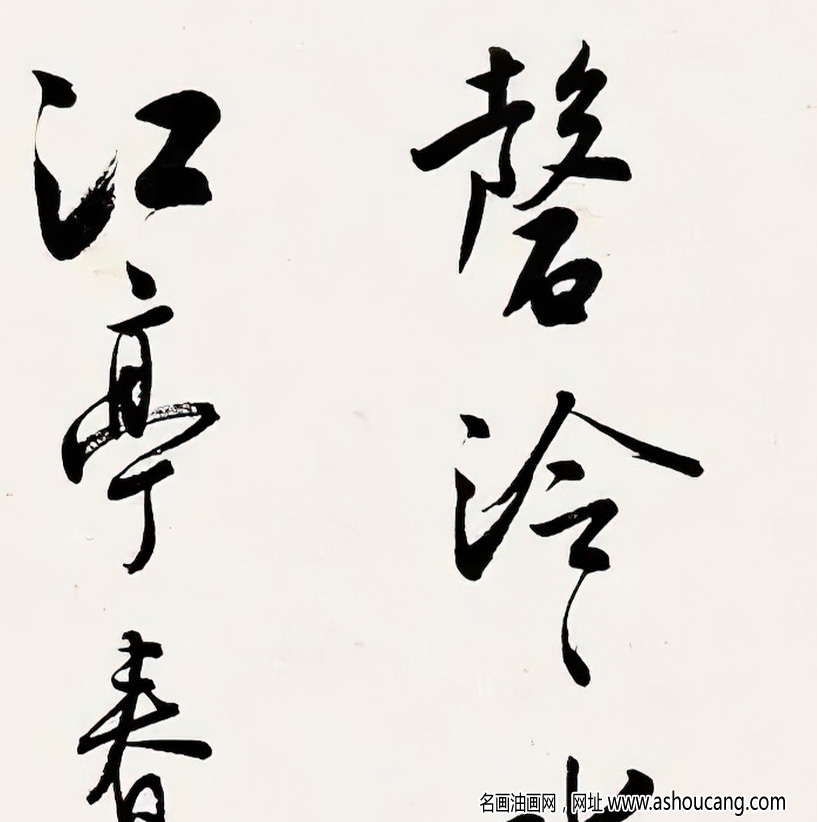 磬冷
江亭春
名画油画网，网址 www.ashoucang.com